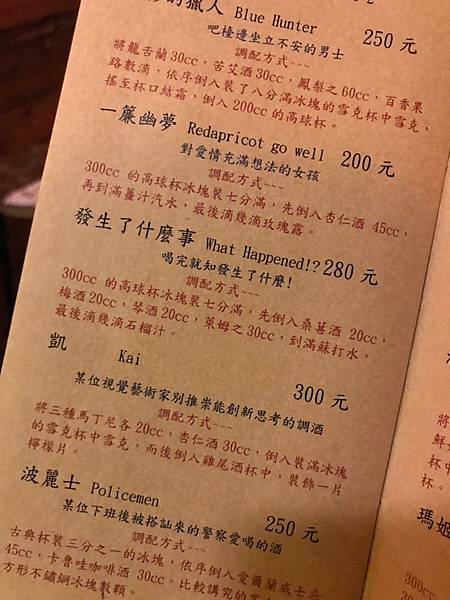 的獵人 Blue Hunter 250 元
吧檯邊坐立不安的男士
調配方式~~~
將龍舌蘭30cc，苦艾酒30cc，鳳梨之60cc，百香果
路數滴，依序倒入裝了八分滿冰塊的雪克杯中雪克，
搖至杯口結霜，倒入200cc的高球杯。
一簾幽夢 Redapricot go well 200 元
對愛情充滿想法的女孩
調配方式~~~
300cc 的高球杯冰塊裝七分滿，先倒入杏仁酒 45cc，
再到滿薑汁汽水，最後滴幾滴玫瑰露。
發生了什麼事 What Happened!? 280 元
喝完就知發生了什麼!
調配方式~~~
300cc 的高球杯冰塊裝七分滿，先倒入桑葚酒 20cc，
梅酒20cc，琴酒20cc，萊姆之30cc，到滿蘇打水，
最後滴幾滴石榴汁。
凱 Kai 300 元
某位視覺藝術家別推崇能創新思考的調酒
調配方式~~~
將三種馬丁尼各20cc，杏仁酒30cc，倒入裝滿冰塊
的雪克杯中雪克，而後倒入雞尾酒杯中，裝飾一片
檸檬片。
波麗士 Policemen 250 元
某位下班後被搭訕來的警察愛喝的酒
調配方式~~~
古典杯裝三分之一的冰塊，依序倒入愛爾蘭威士忌
45cc，卡魯哇咖啡酒 30cc。比較講究的
方形不鏽鋼冰塊數顆。
將
鮮
杯中
杯。
瑪姬
300cc